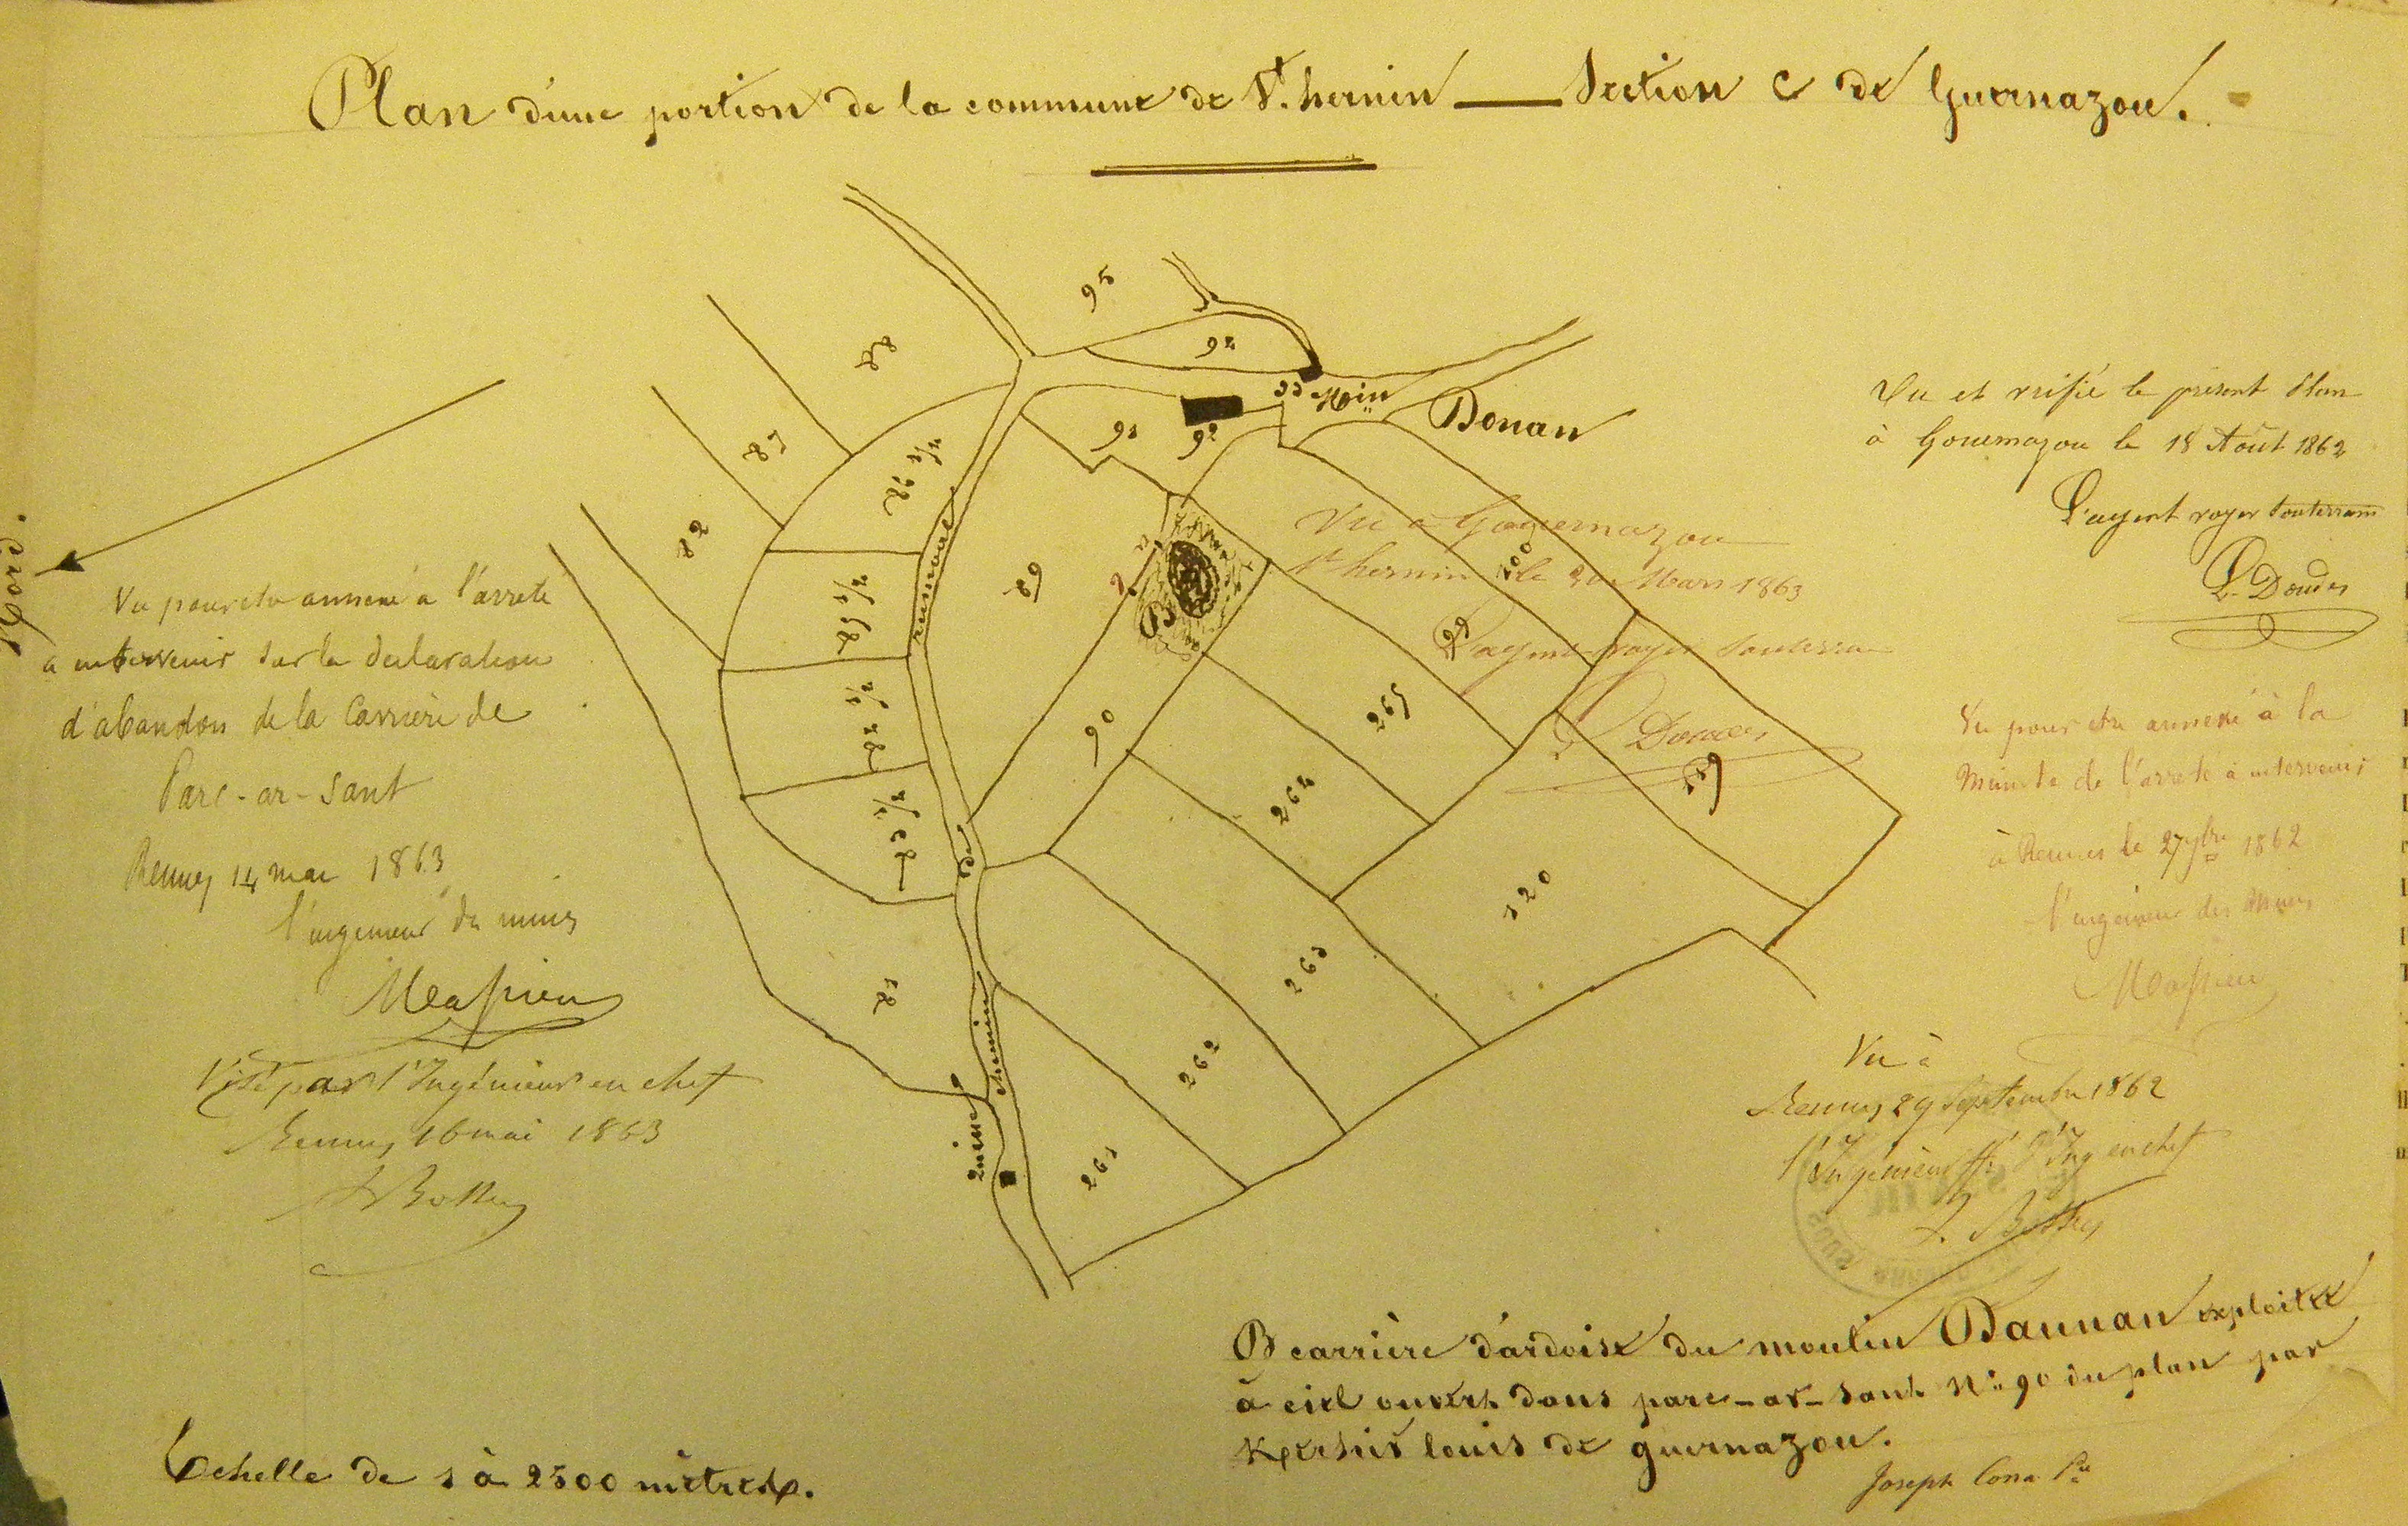 Plan d'une portion de la commune de St. hernin — Section C de Guernazou.
Nord.
Vu et vérifié le présent Plan
à Gouernazou le 18 Août 1862
L'agent voyer Souterrain
L. Douder
Vu pour être annexé à l'arrêté
à intervenir sur la déclaration
d'abandon de la Carrière de
Parc-ar-Sant
Rennes 14 mai 1863
l'ingénieur des mines
Massieu
Visé par l'Ingénieur en chef
Rennes, 16 mai 1863
Vu à Gouernazou
St hernin le 20 Mars 1863
L'agent voyer Souterrain
L Douder
Vu pour être annexé à la
Minute de l'arrêté à intervenir
à Rennes le 27 7bre 1862
l'ingénieur des Mines
Massieu
Vu à
Rennes, 29 Septembre 1862
l'Ingénieur ff. d'Ing en chef
95
92
88
93
Min
Donan
91
92
87
82
89
B
90
100
99
265
264
119
120
85
263
262
261
chemin
de
B carrière d'ardoise du moulin Daunan exploitée
à ciel ouvert dans parc-ar-sant No 90 du plan par
louis de guernazou.
Joseph
Echelle de 1 à 2500 mètres.